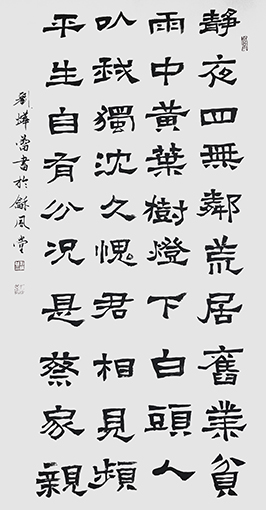 靜夜四無鄰荒居舊業貧
雨中黃葉樹燈下白頭人
以我獨沈久愧君相見頻
平生自有分況是蔡家親
劉燁書於龢風堂